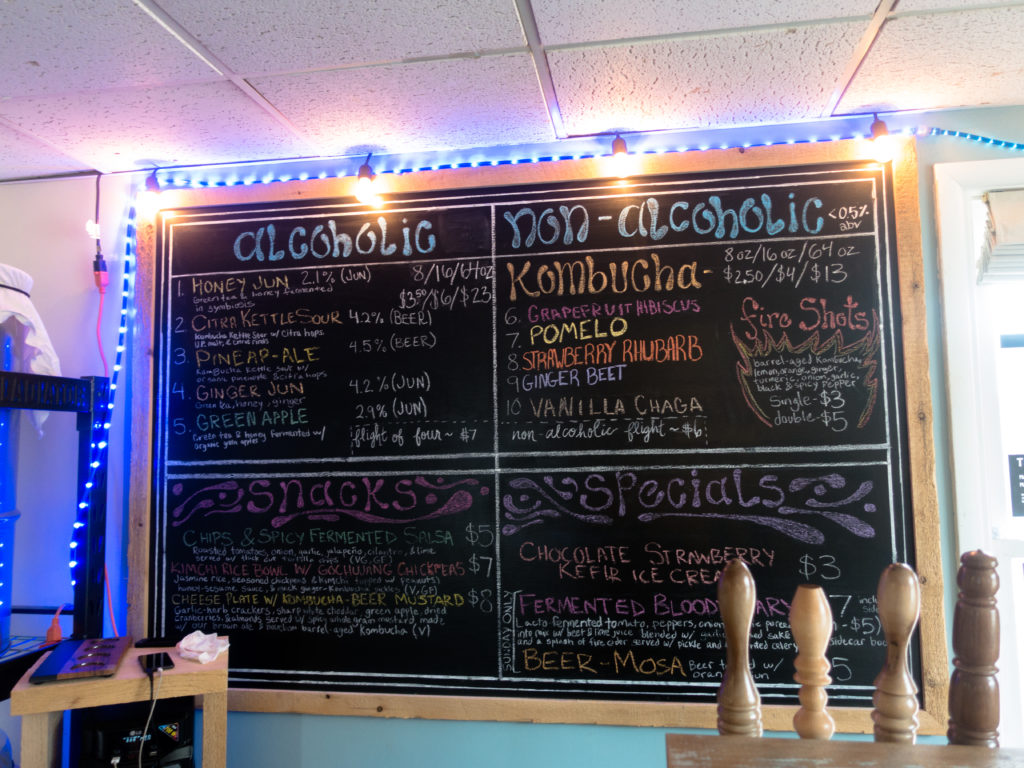 alcoholic
1. HONEY JUN 2.1% (JUN) 8/16/64oz
Green tea & honey fermented
in symbiosis
$3.50/$6/$23
2. CITRA KETTLE SOUR 4.2% (BEER)
Kombucha Kettle Sour w/ Citra hops,
3. PINEAP-ALE 4.5% (BEER)
Kombucha Kettle Sour w/
organic pineapple & citra hops
4. GINGER JUN 4.2% (JUN)
Green tea, honey, ginger
5. GREEN APPLE 2.9% (JUN)
Green tea & honey fermented w/
organic green apples
flight of four ~ $7
non-alcoholic <0.5%
abv
Kombucha- 8oz/16oz/64oz
$2.50/$4/$13
6. GRAPEFRUIT HIBISCUS
7. POMELO
8. STRAWBERRY RHUBARB
9 GINGER BEET
10 VANILLA CHAGA
non-alcoholic flight ~ $6
Fire Shots
barrel-aged Kombucha,
lemon, orange, ginger,
turmeric, onion, garlic,
black & spicy pepper
Single - $3
double - $5
Snacks
CHIPS & SPICY FERMENTED SALSA $5
Roasted tomatoes, onion, garlic, jalapeño, cilantro, & lime
served w/ thick cut tortilla chips (VG, GF)
KIMCHI RICE BOWL W/ GOCHUJANG CHICKPEAS $7
Jasmine rice, seasoned chickpeas & kimchi topped w/ peanuts,
honey-sesame sauce, & quick ginger-kombucha pickles (V, GF)
CHEESE PLATE W/ KOMBUCHA-BEER MUSTARD $8
Garlic-herb crackers, sharp white cheddar, green apple, dried
cranberries, & almonds served w/ spicy whole grain mustard made
w/ our brown ale & bourbon barrel-aged Kombucha (V)
Specials
CHOCOLATE STRAWBERRY
KEFIR ICE CREAM $3
SUNDAY ONLY
FERMENTED BLOODY MARY
Lacto fermented tomato, peppers, onion
into mix w/ beet & lime juice blended w/ garlic
and a splash of fire cider served w/ pickle and celery
BEER-MOSA Beer w/